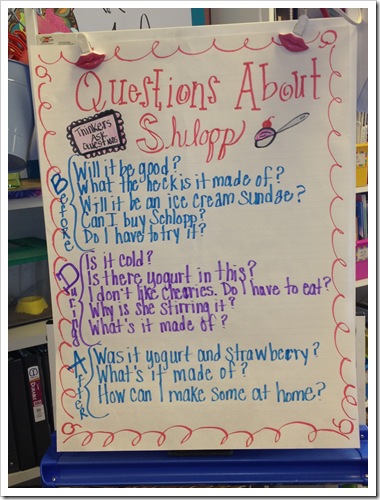 Questions About
Schlopp
Thinkers
Ask
Questions
Before
Will it be good?
What the heck is it made of?
Will it be an ice cream sundae?
Can I buy Schlopp?
Do I have to try it?
During
Is it cold?
Is there yogurt in this?
I don't like cherries. Do I have to eat?
Why is she stirring it?
What's it made of?
After
Was it yogurt and strawberry?
What's it made of?
How can I make some at home?